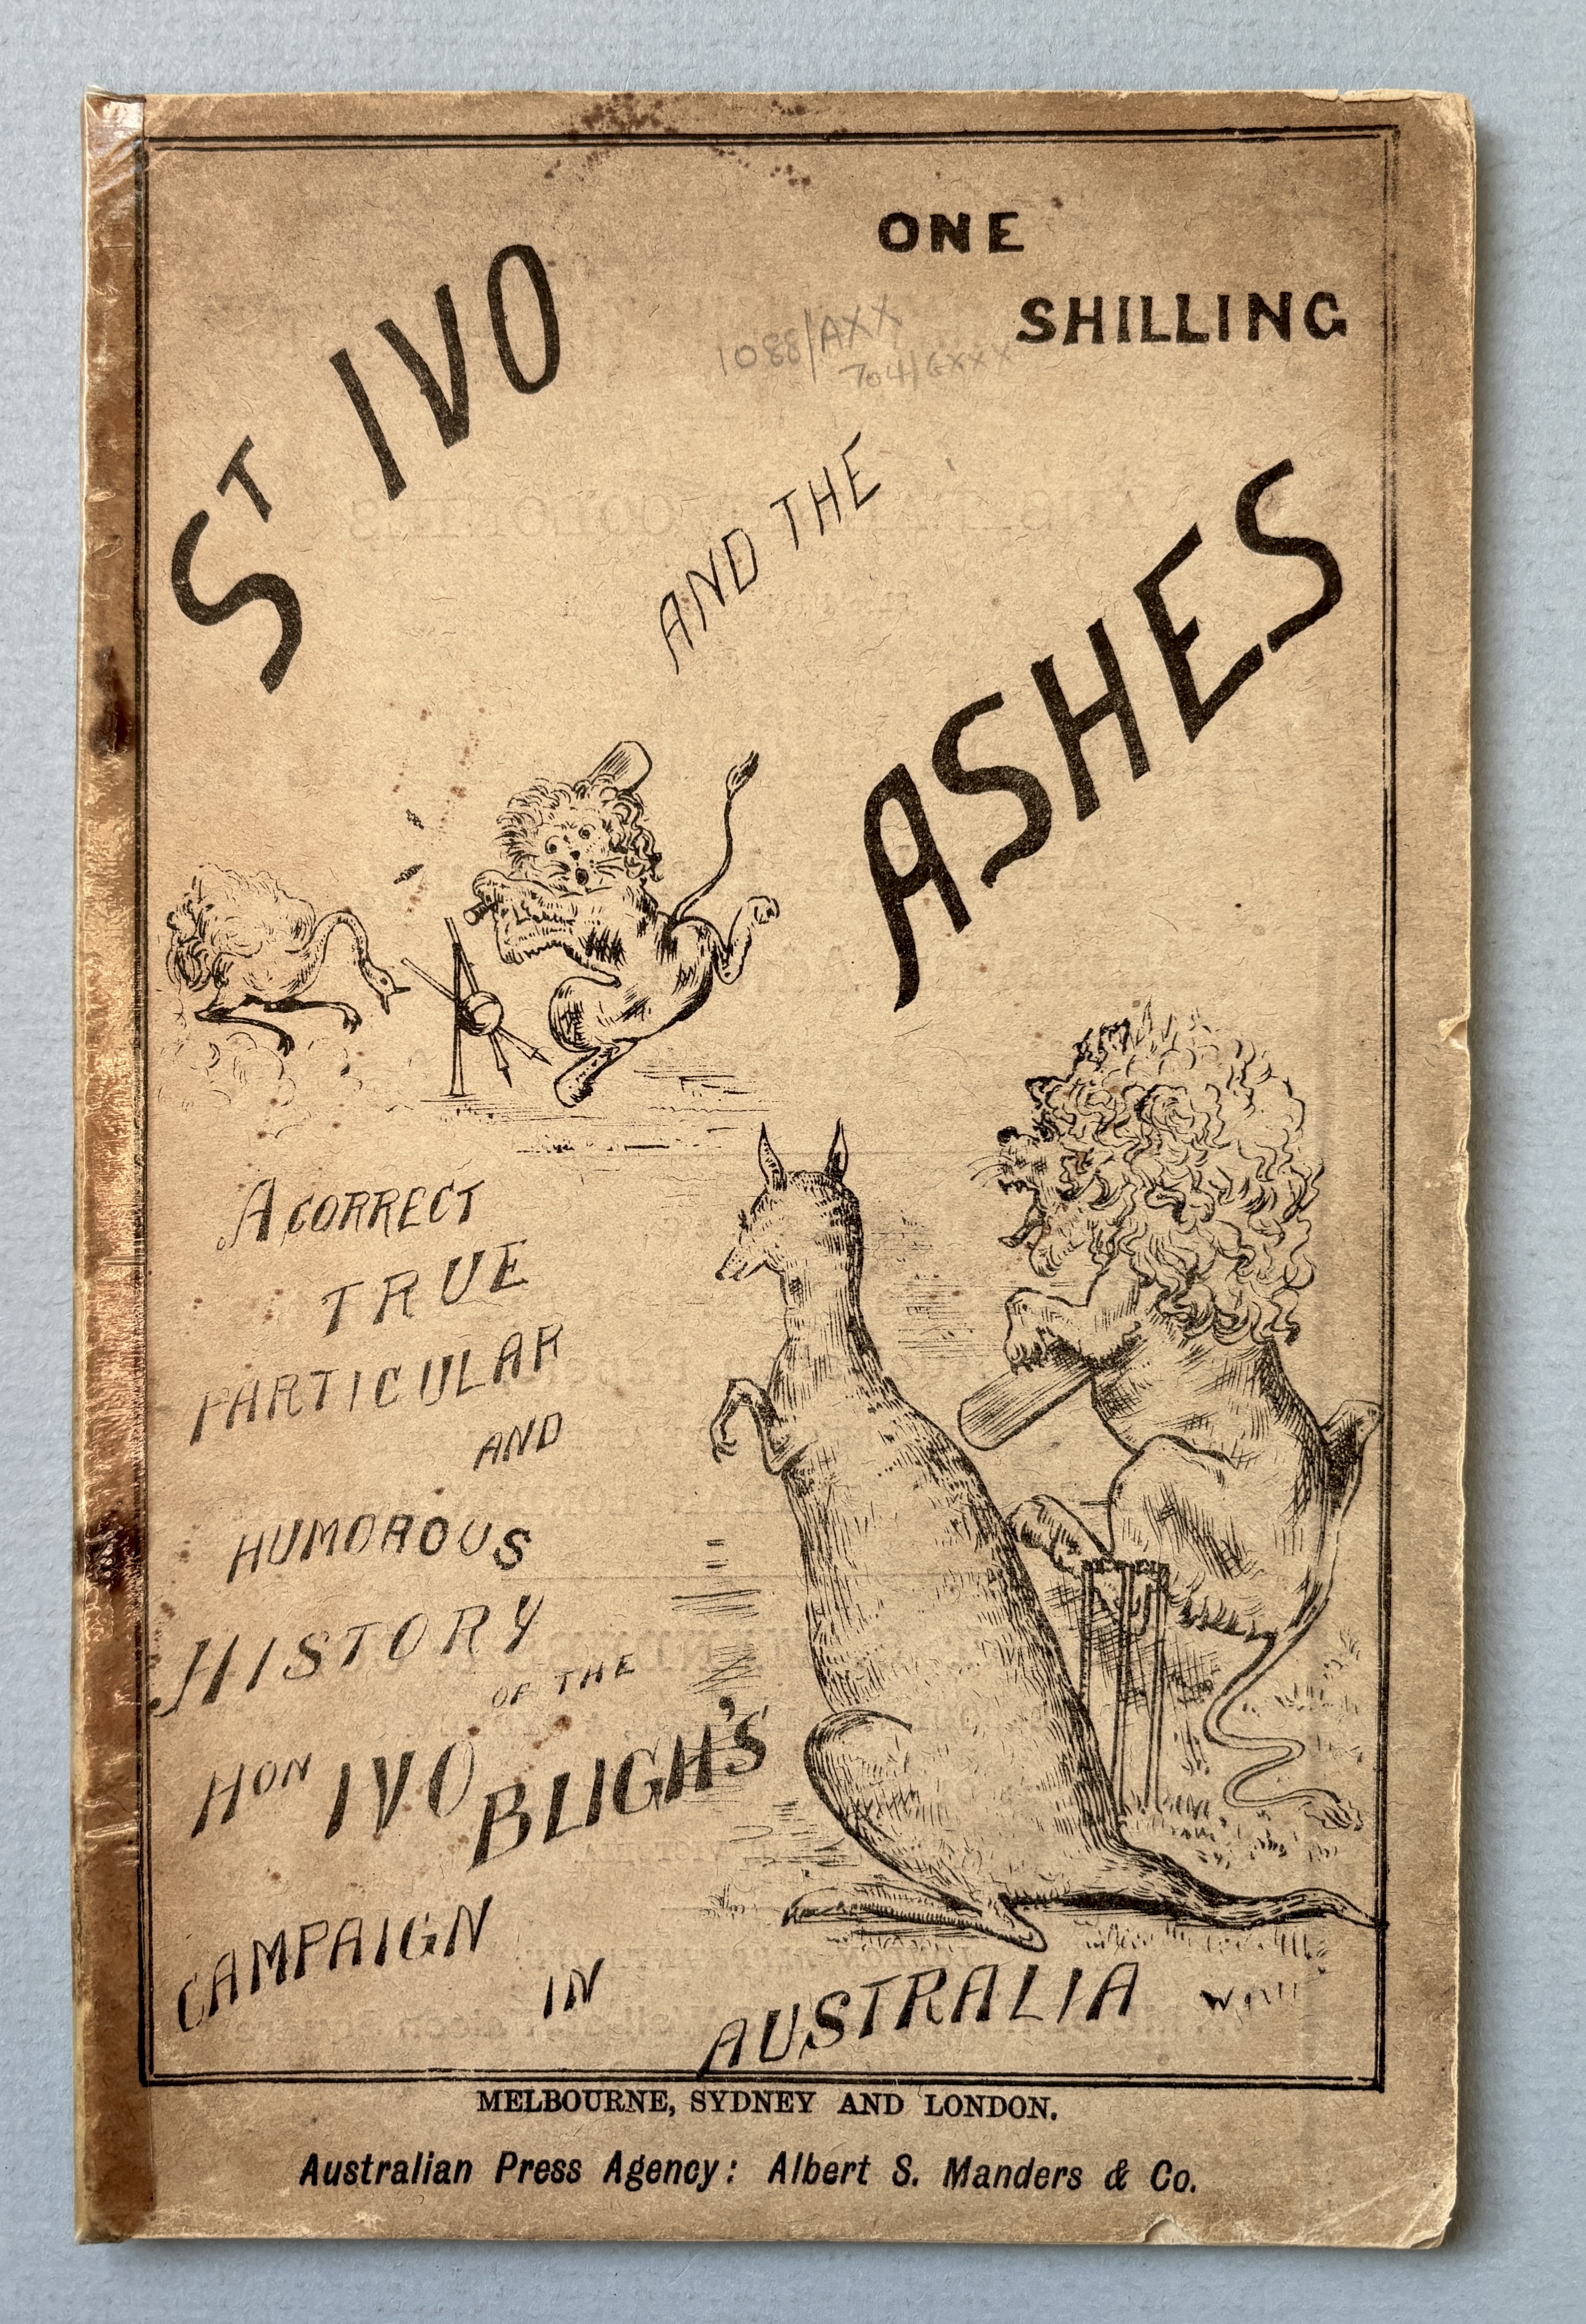 ONE
SHILLING
ST IVO
1088/AXX
704/GXXX
AND THE
ASHES
A CORRECT
TRUE
PARTICULAR
AND
HUMOROUS
HISTORY
OF THE
HON IVO BLIGH'S
CAMPAIGN
IN
AUSTRALIA
MELBOURNE, SYDNEY AND LONDON.
Australian Press Agency: Albert S. Manders & Co.